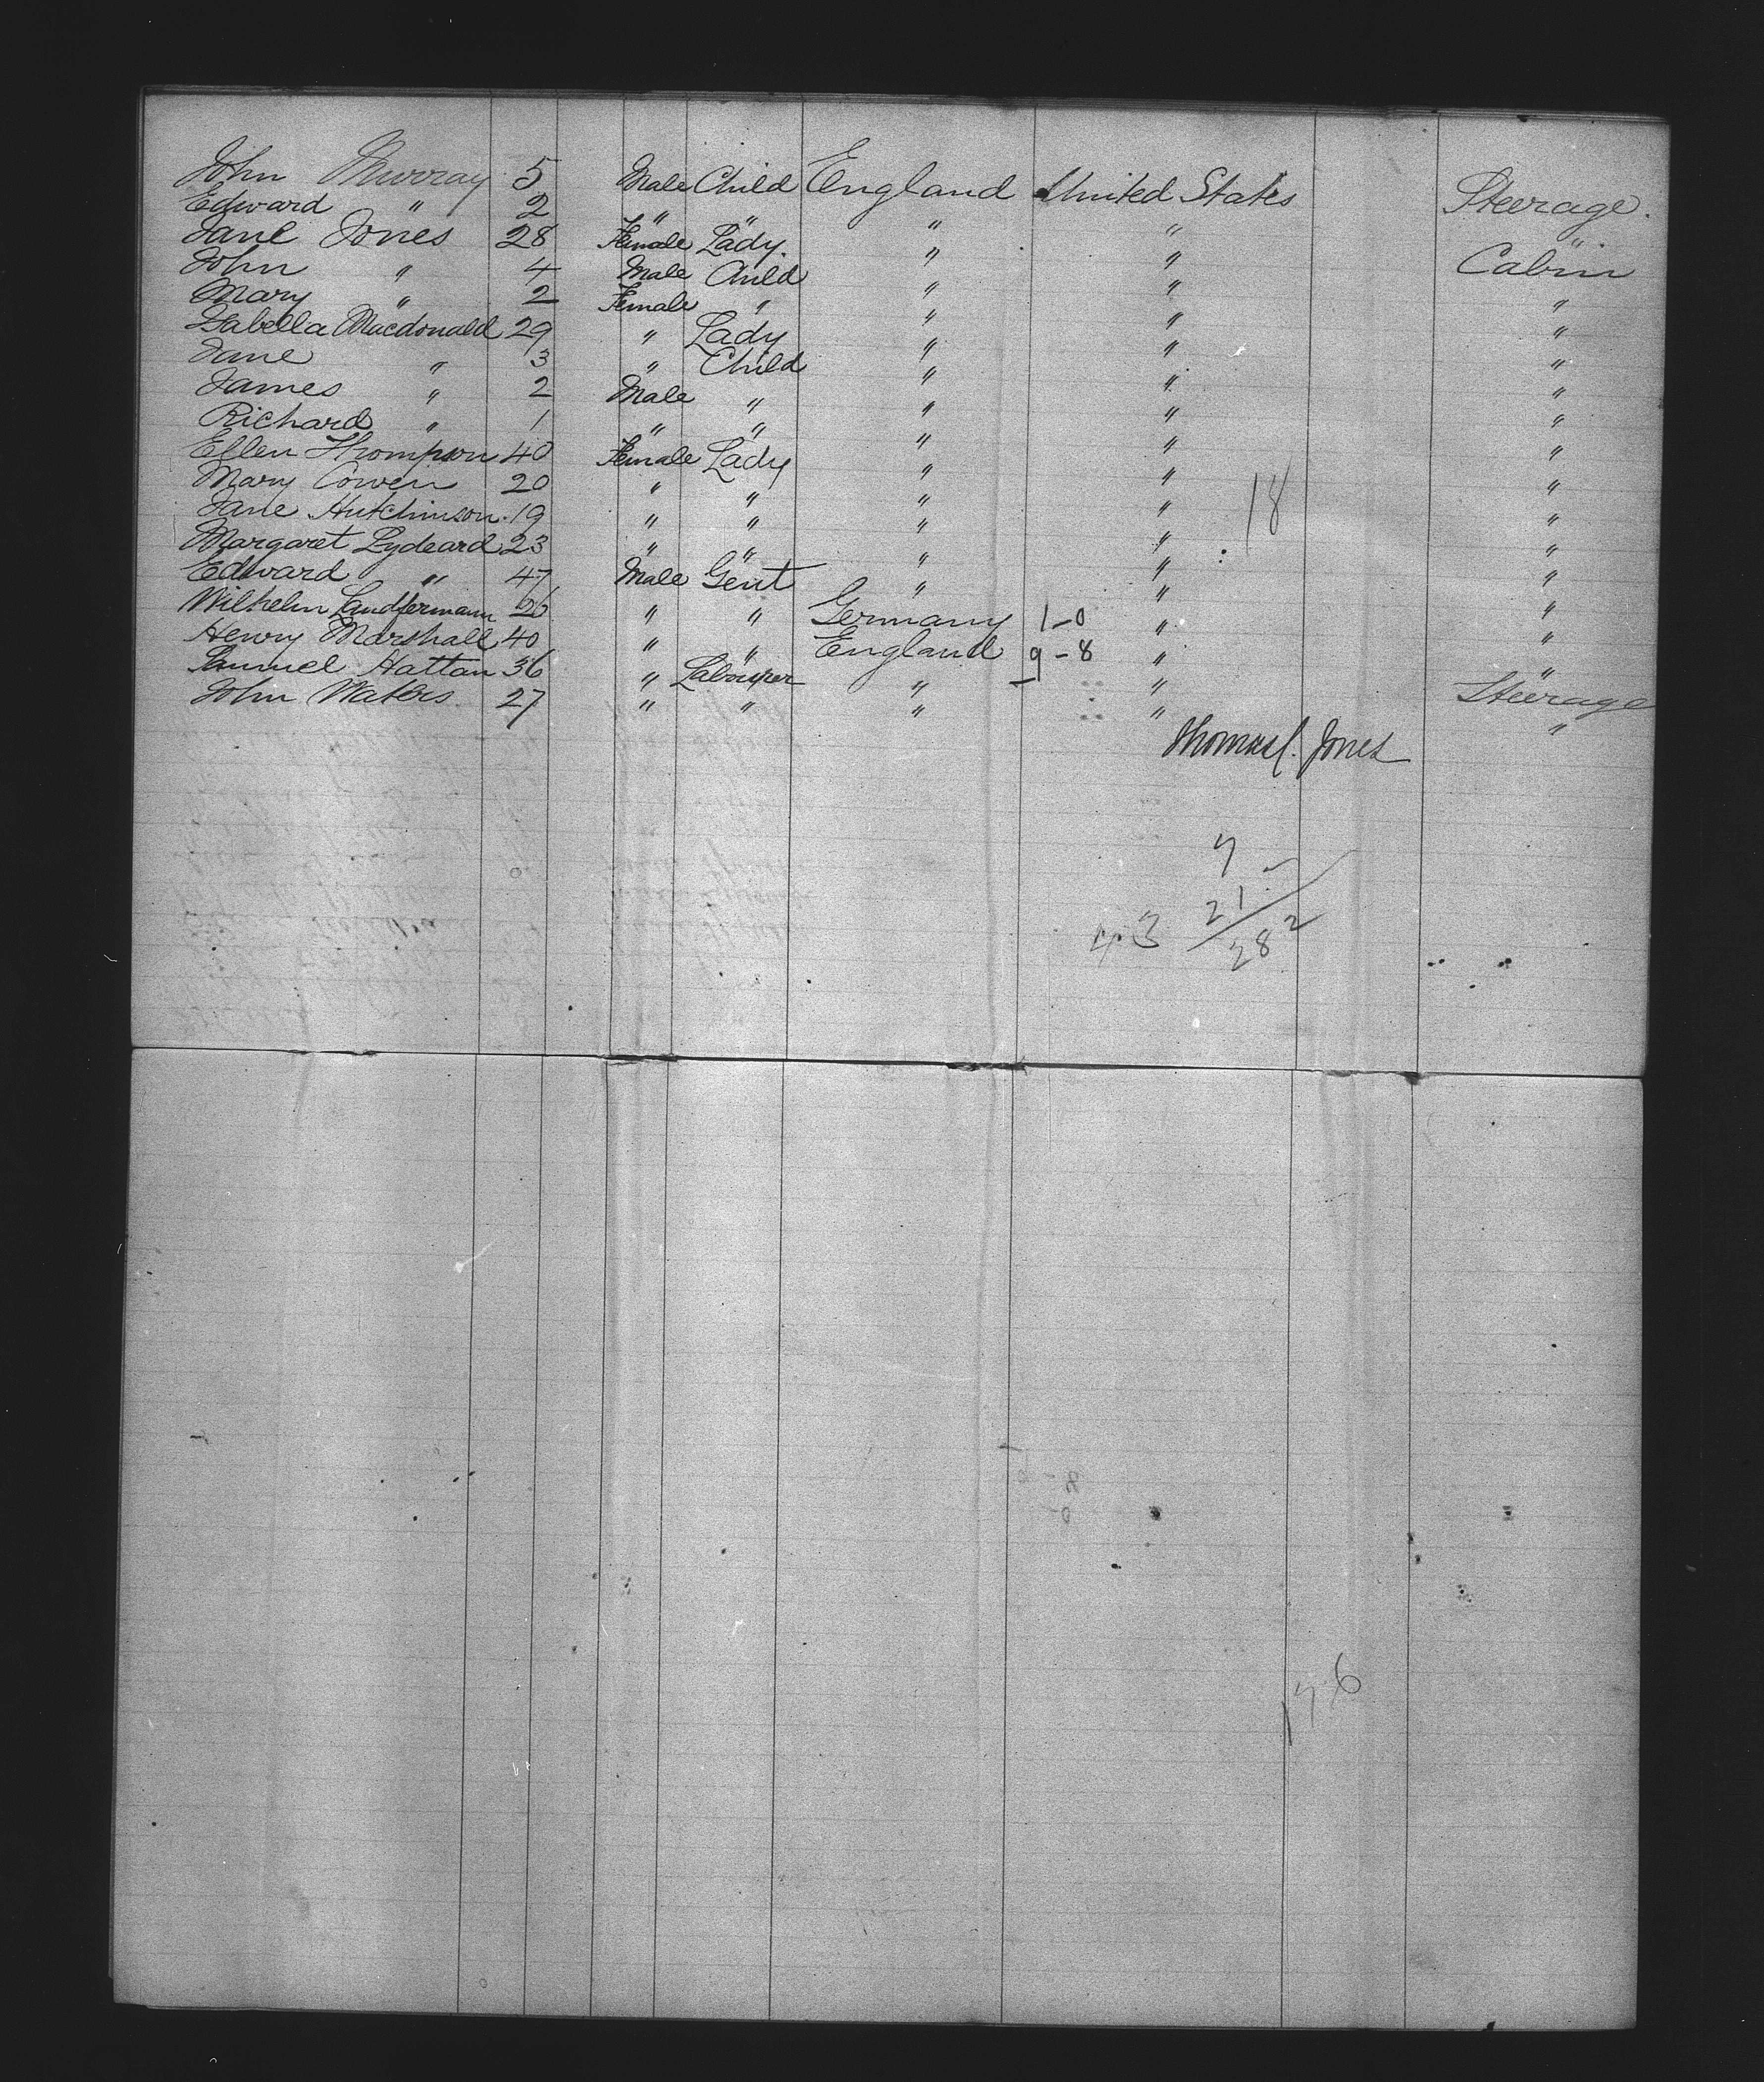 John Murray 5 Male Child England United States Steerage.
Edward " 2 " " " " "
Jane Jones 28 Female Lady. " " Cabin
John " 4 Male Child " " "
Mary " 2 Female " " " "
Isabella Macdonald 29 " Lady " " "
Jane " 3 " Child " " "
James " 2 Male " " " "
Richard " 1 " " " " "
Ellen Thompson 40 Female Lady " " "
Mary Cowen 20 " " " " "
Jane Hutchinson 19 " " " " 18 "
Margaret Lydeard 23 " " " " "
Edward " 47 Male Gent " " "
Wilhelm Landfermann 26 " " Germany 1-0 " "
Henry Marshall 40 " " England 9-8 " "
Samuel Hattan 36 " Labourer " " Steerage
John Waters. 27 " " " " "
Thomas C. Jones
7
21
43 28 2
176